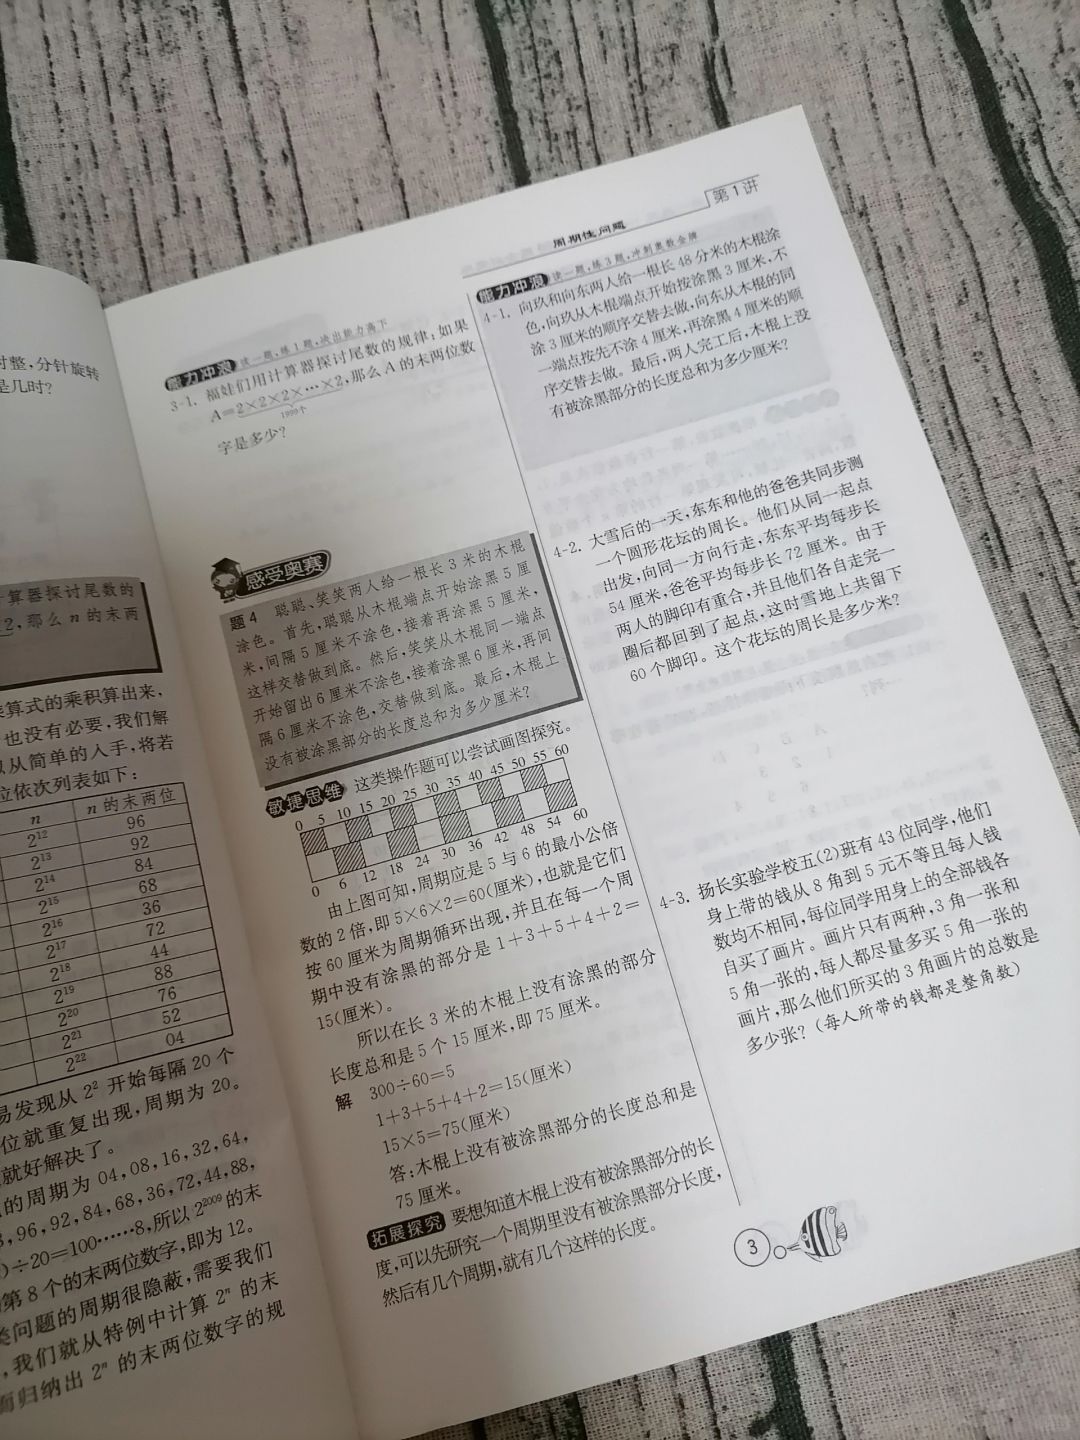 时整,分针旋转
是几时?
算器探讨尾数的
2,那么 n 的末两
乘算式的乘积算出来,
也没有必要,我们解
以从简单的入手,将若
位依次列表如下:
n n 的末两位
2¹² 96
2¹³ 92
2¹⁴ 84
2¹⁵ 68
2¹⁶ 36
2¹⁷ 72
2¹⁸ 44
2¹⁹ 88
2²⁰ 76
2²¹ 52
2²² 04
易发现从 2² 开始每隔 20 个
位就重复出现,周期为 20。
就好解决了。
的周期为 04,08,16,32,64,
96,92,84,68,36,72,44,88,
)÷20=100……8,所以 2²⁰⁰⁹ 的末
第 8 个的末两位数字,即为 12。
类问题的周期很隐蔽,需要我们
,我们就从特例中计算 2ⁿ 的末
而归纳出 2ⁿ 的末两位数字的规
周期性问题 第 1 讲
能力冲浪 读一题,练 1 题,决出能力高下
3-1. 福娃们用计算器探讨尾数的规律:如果
A=2×2×2×…×2,那么 A 的末两位数
1999个
字是多少?
感受奥赛
题 4 聪聪、笑笑两人给一根长 3 米的木棍
涂色。首先,聪聪从木棍端点开始涂黑 5 厘
米,间隔 5 厘米不涂色,接着再涂黑 5 厘米,
这样交替做到底。然后,笑笑从木棍同一端点
开始留出 6 厘米不涂色,接着涂黑 6 厘米,再间
隔 6 厘米不涂色,交替做到底。最后,木棍上
没有被涂黑部分的长度总和为多少厘米?
敏捷思维 这类操作题可以尝试画图探究。
0 5 10 15 20 25 30 35 40 45 50 55 60
0 6 12 18 24 30 36 42 48 54 60
由上图可知,周期应是 5 与 6 的最小公倍
数的 2 倍,即 5×6×2=60(厘米),也就是它们
按 60 厘米为周期循环出现,并且在每一个周
期中没有涂黑的部分是 1+3+5+4+2=
15(厘米)。
所以在长 3 米的木棍上没有涂黑的部分
长度总和是 5 个 15 厘米,即 75 厘米。
解 300÷60=5
1+3+5+4+2=15(厘米)
15×5=75(厘米)
答:木棍上没有被涂黑部分的长度总和是
75 厘米。
拓展探究 要想知道木棍上没有被涂黑部分的长
度,可以先研究一个周期里没有被涂黑部分长度,
然后有几个周期,就有几个这样的长度。
能力冲浪 读一题,练 3 题,冲刺奥数金牌
4-1. 向玖和向东两人给一根长 48 分米的木棍涂
色,向玖从木棍端点开始按涂黑 3 厘米,不
涂 3 厘米的顺序交替去做,向东从木棍的同
一端点按先不涂 4 厘米,再涂黑 4 厘米的顺
序交替去做。最后,两人完工后,木棍上没
有被涂黑部分的长度总和为多少厘米?
4-2. 大雪后的一天,东东和他的爸爸共同步测
一个圆形花坛的周长。他们从同一起点
出发,向同一方向行走,东东平均每步长
54 厘米,爸爸平均每步长 72 厘米。由于
两人的脚印有重合,并且他们各自走完一
圈后都回到了起点,这时雪地上共留下
60 个脚印。这个花坛的周长是多少米?
4-3. 扬长实验学校五(2)班有 43 位同学,他们
身上带的钱从 8 角到 5 元不等且每人钱
数均不相同,每位同学用身上的全部钱各
自买了画片。画片只有两种,3 角一张和
5 角一张的,每人都尽量多买 5 角一张的
画片,那么他们所买的 3 角画片的总数是
多少张?(每人所带的钱都是整角数)
3